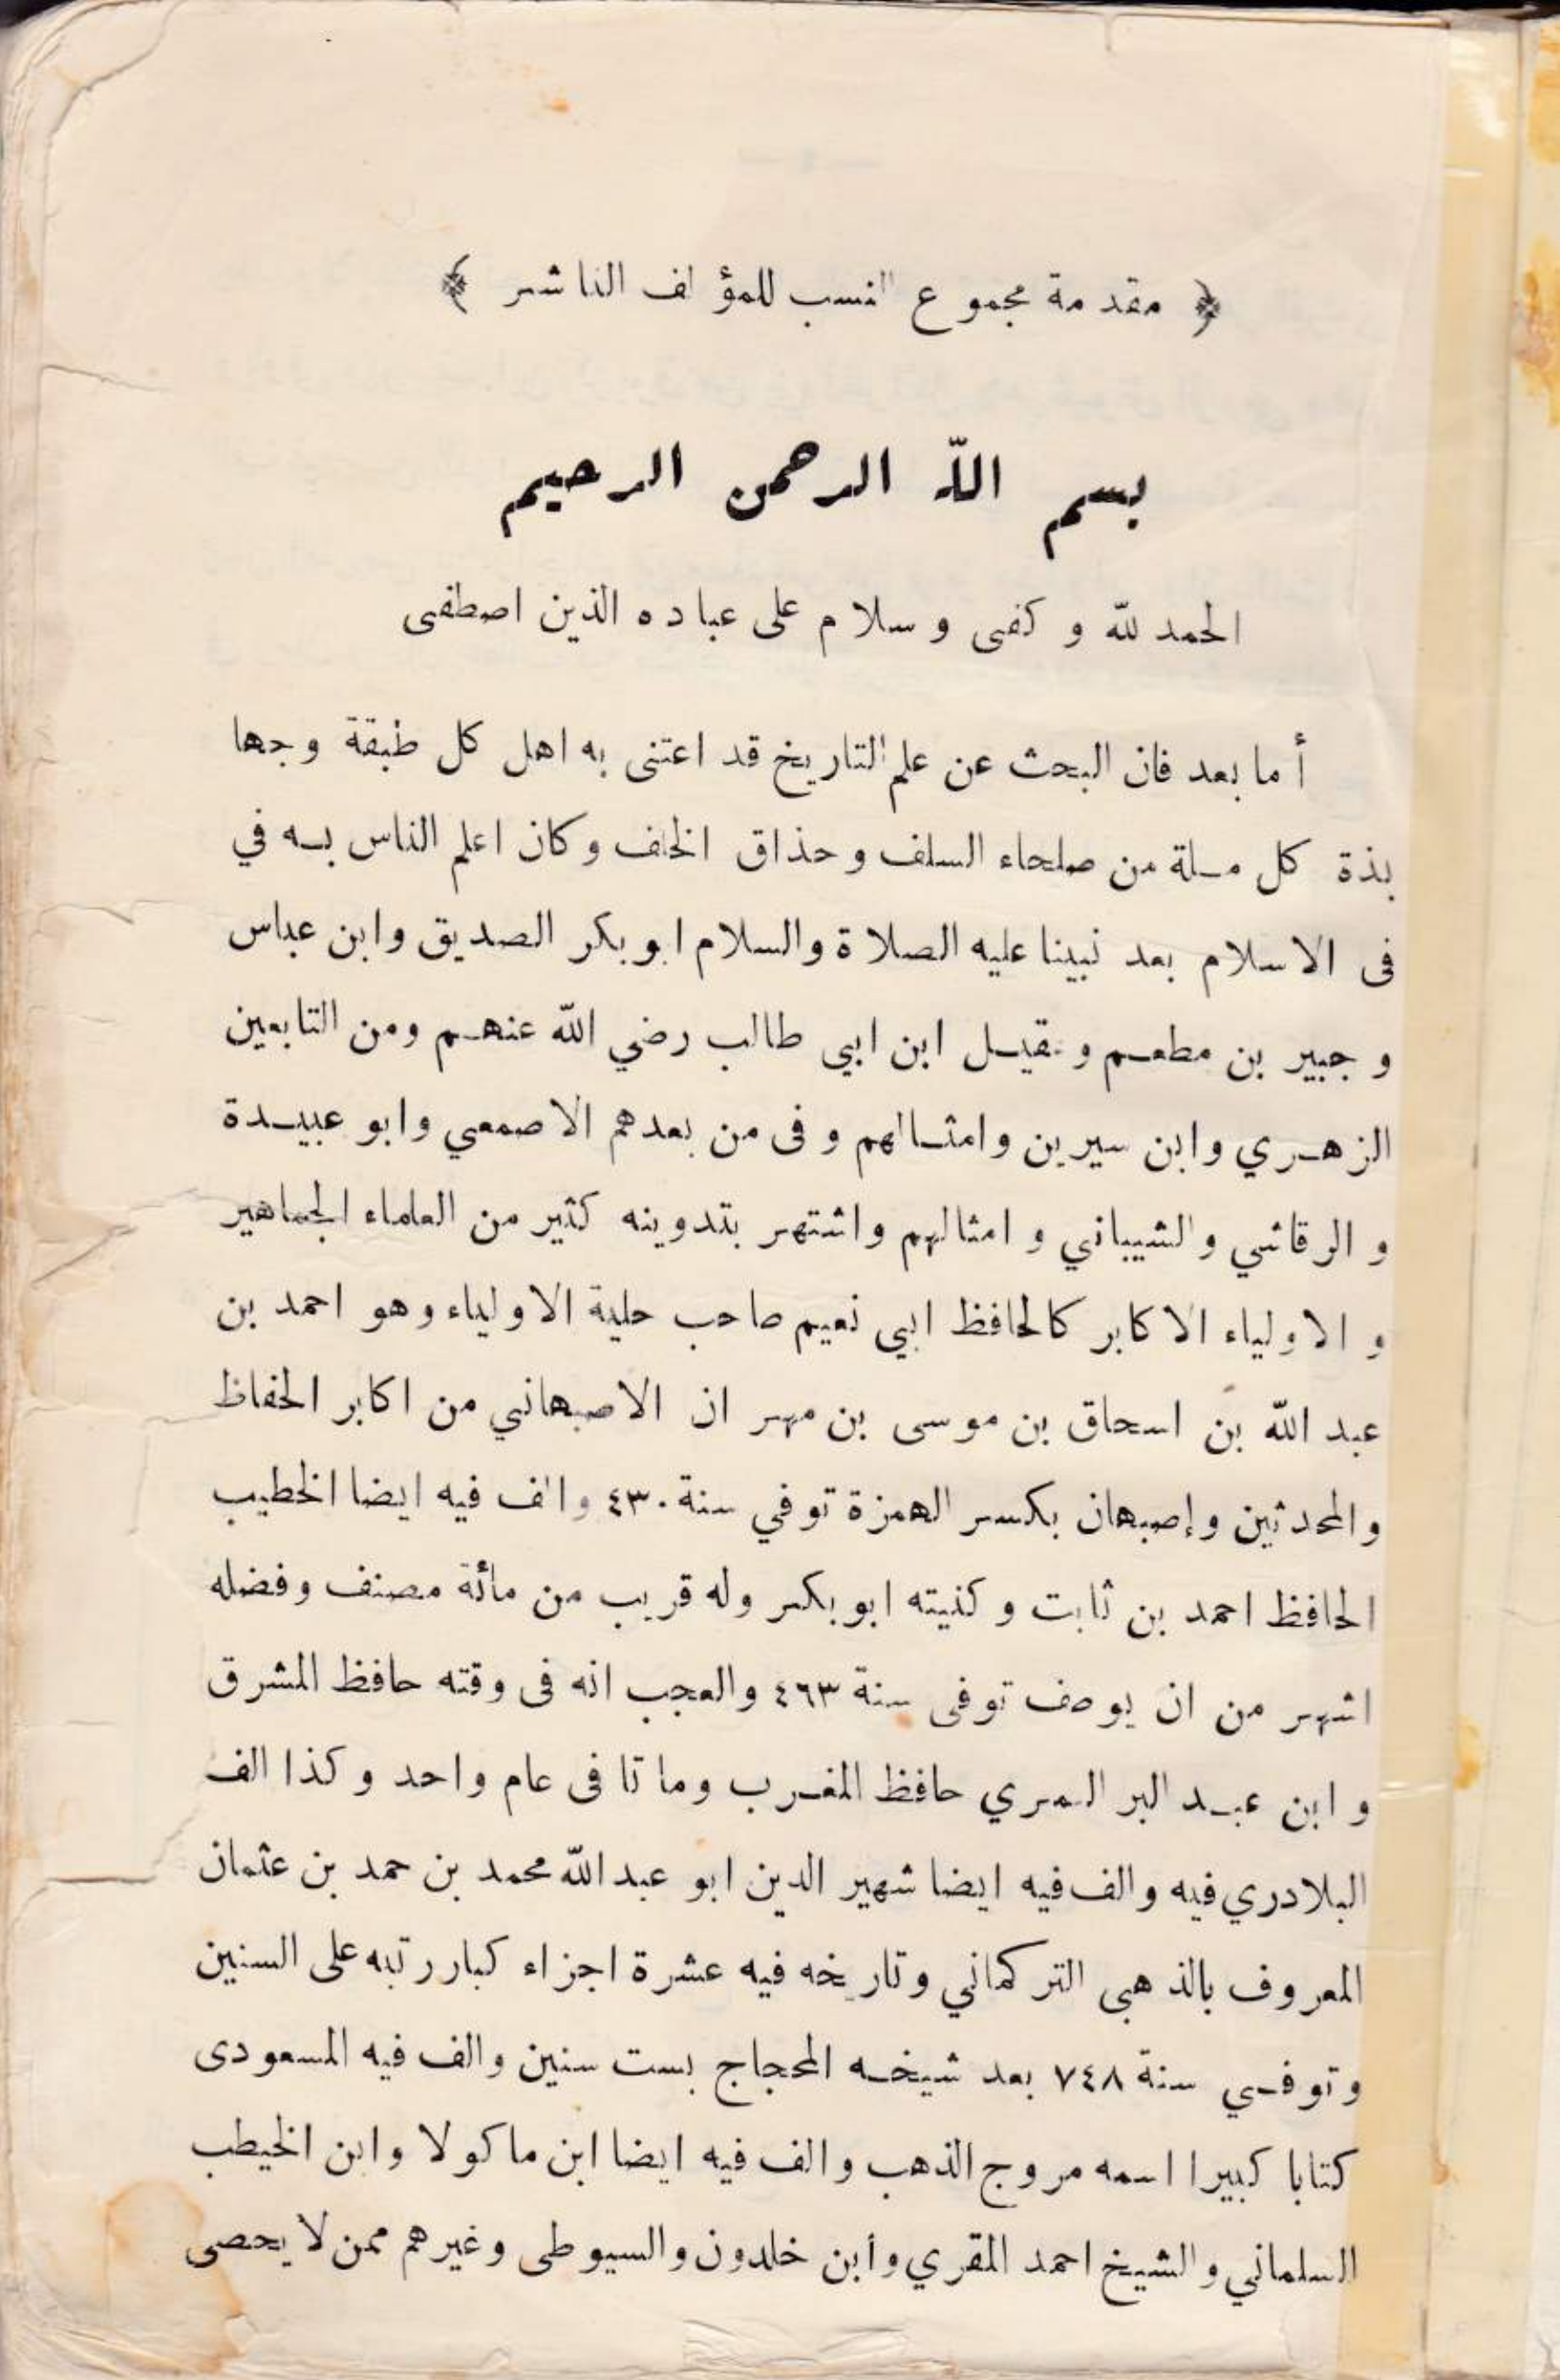 ﴿ مقدمة مجموع النسب للمؤلف الناشر ﴾
بسم الله الرحمن الرحيم
الحمد لله و كفى و سلام على عباده الذين اصطفى
أما بعد فان البحث عن علم التاريخ قد اعتنى به اهل كل طبقة وجها
بذة كل ملة من صلحاء السلف و حذاق الخلف و كان اعلم الناس به في
فى الاسلام بعد نبينا عليه الصلاة والسلام ابو بكر الصديق وابن عباس
و جبير بن مطعم و عقيل ابن ابي طالب رضي الله عنهم ومن التابعين
الزهري وابن سيرين وامثالهم و فى من بعدهم الاصمعي وابو عبيدة
و الرقاشي والشيباني و امثالهم واشتهر بتدوينه كثير من العلماء الجماهير
و الاولياء الاكابر كالحافظ ابي نعيم صاحب حلية الاولياء وهو احمد بن
عبد الله بن اسحاق بن موسى بن مهران الاصبهاني من اكابر الحفاظ
والمحدثين وإصبهان بكسر الهمزة توفي سنة ٤٣٠ والف فيه ايضا الخطيب
الحافظ احمد بن ثابت و كنيته ابو بكر وله قريب من مائة مصنف وفضله
اشهر من ان يوصف توفى سنة ٤٦٣ والعجب انه فى وقته حافظ المشرق
و ابن عبد البر المري حافظ المغرب وماتا فى عام واحد و كذا الف
البلادري فيه والف فيه ايضا شهير الدين ابو عبد الله محمد بن حمد بن عثمان
المعروف بالذهبى التركماني وتاريخه فيه عشرة اجزاء كبار رتبه على السنين
وتوفي سنة ٧٤٨ بعد شيخه المحجاج بست سنين والف فيه المسعودى
كتابا كبيرا اسمه مروج الذهب والف فيه ايضا ابن ماكولا وابن الخيطب
السلماني والشيخ احمد المقري وأبن خلدون والسيوطى وغيرهم ممن لا يحصى